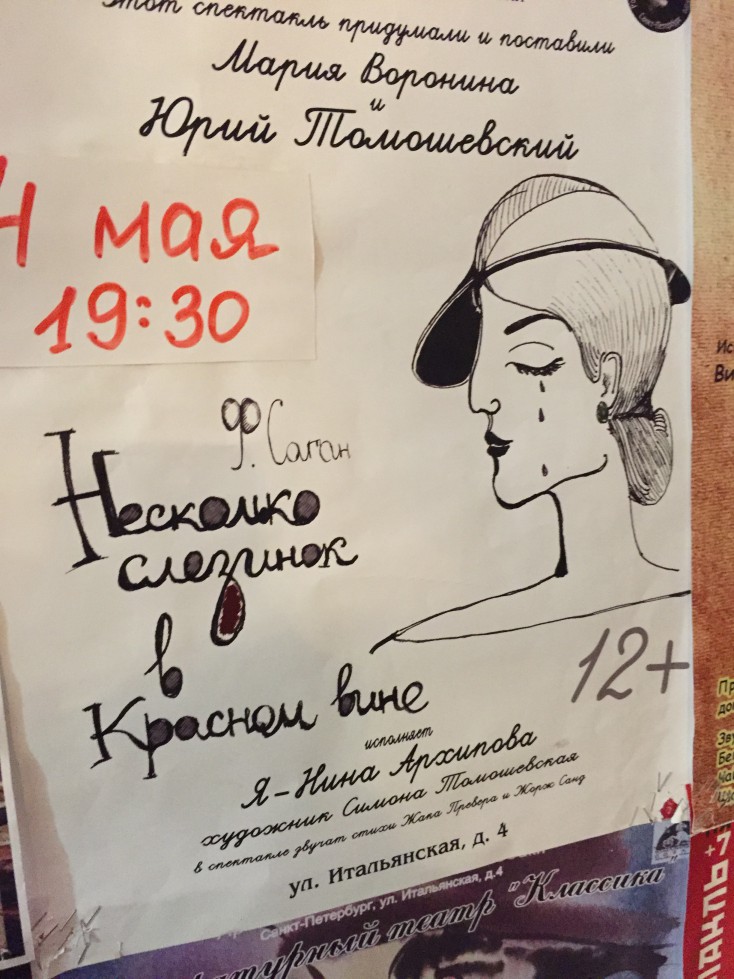 Этот спектакль придумали и поставили
Мария Воронина
и
Юрий Томошевский
4 мая
19:30
Ф. Саган
Несколько
слезинок
в
Красном вине
12+
исполняет
Я - Нина Архипова
художник Симона Томошевская
в спектакле звучат стихи Жака Превера и Жорж Санд
ул. Итальянская, д. 4
Санкт-Петербург, ул. Итальянская, д.4
театр "Классика"
+7